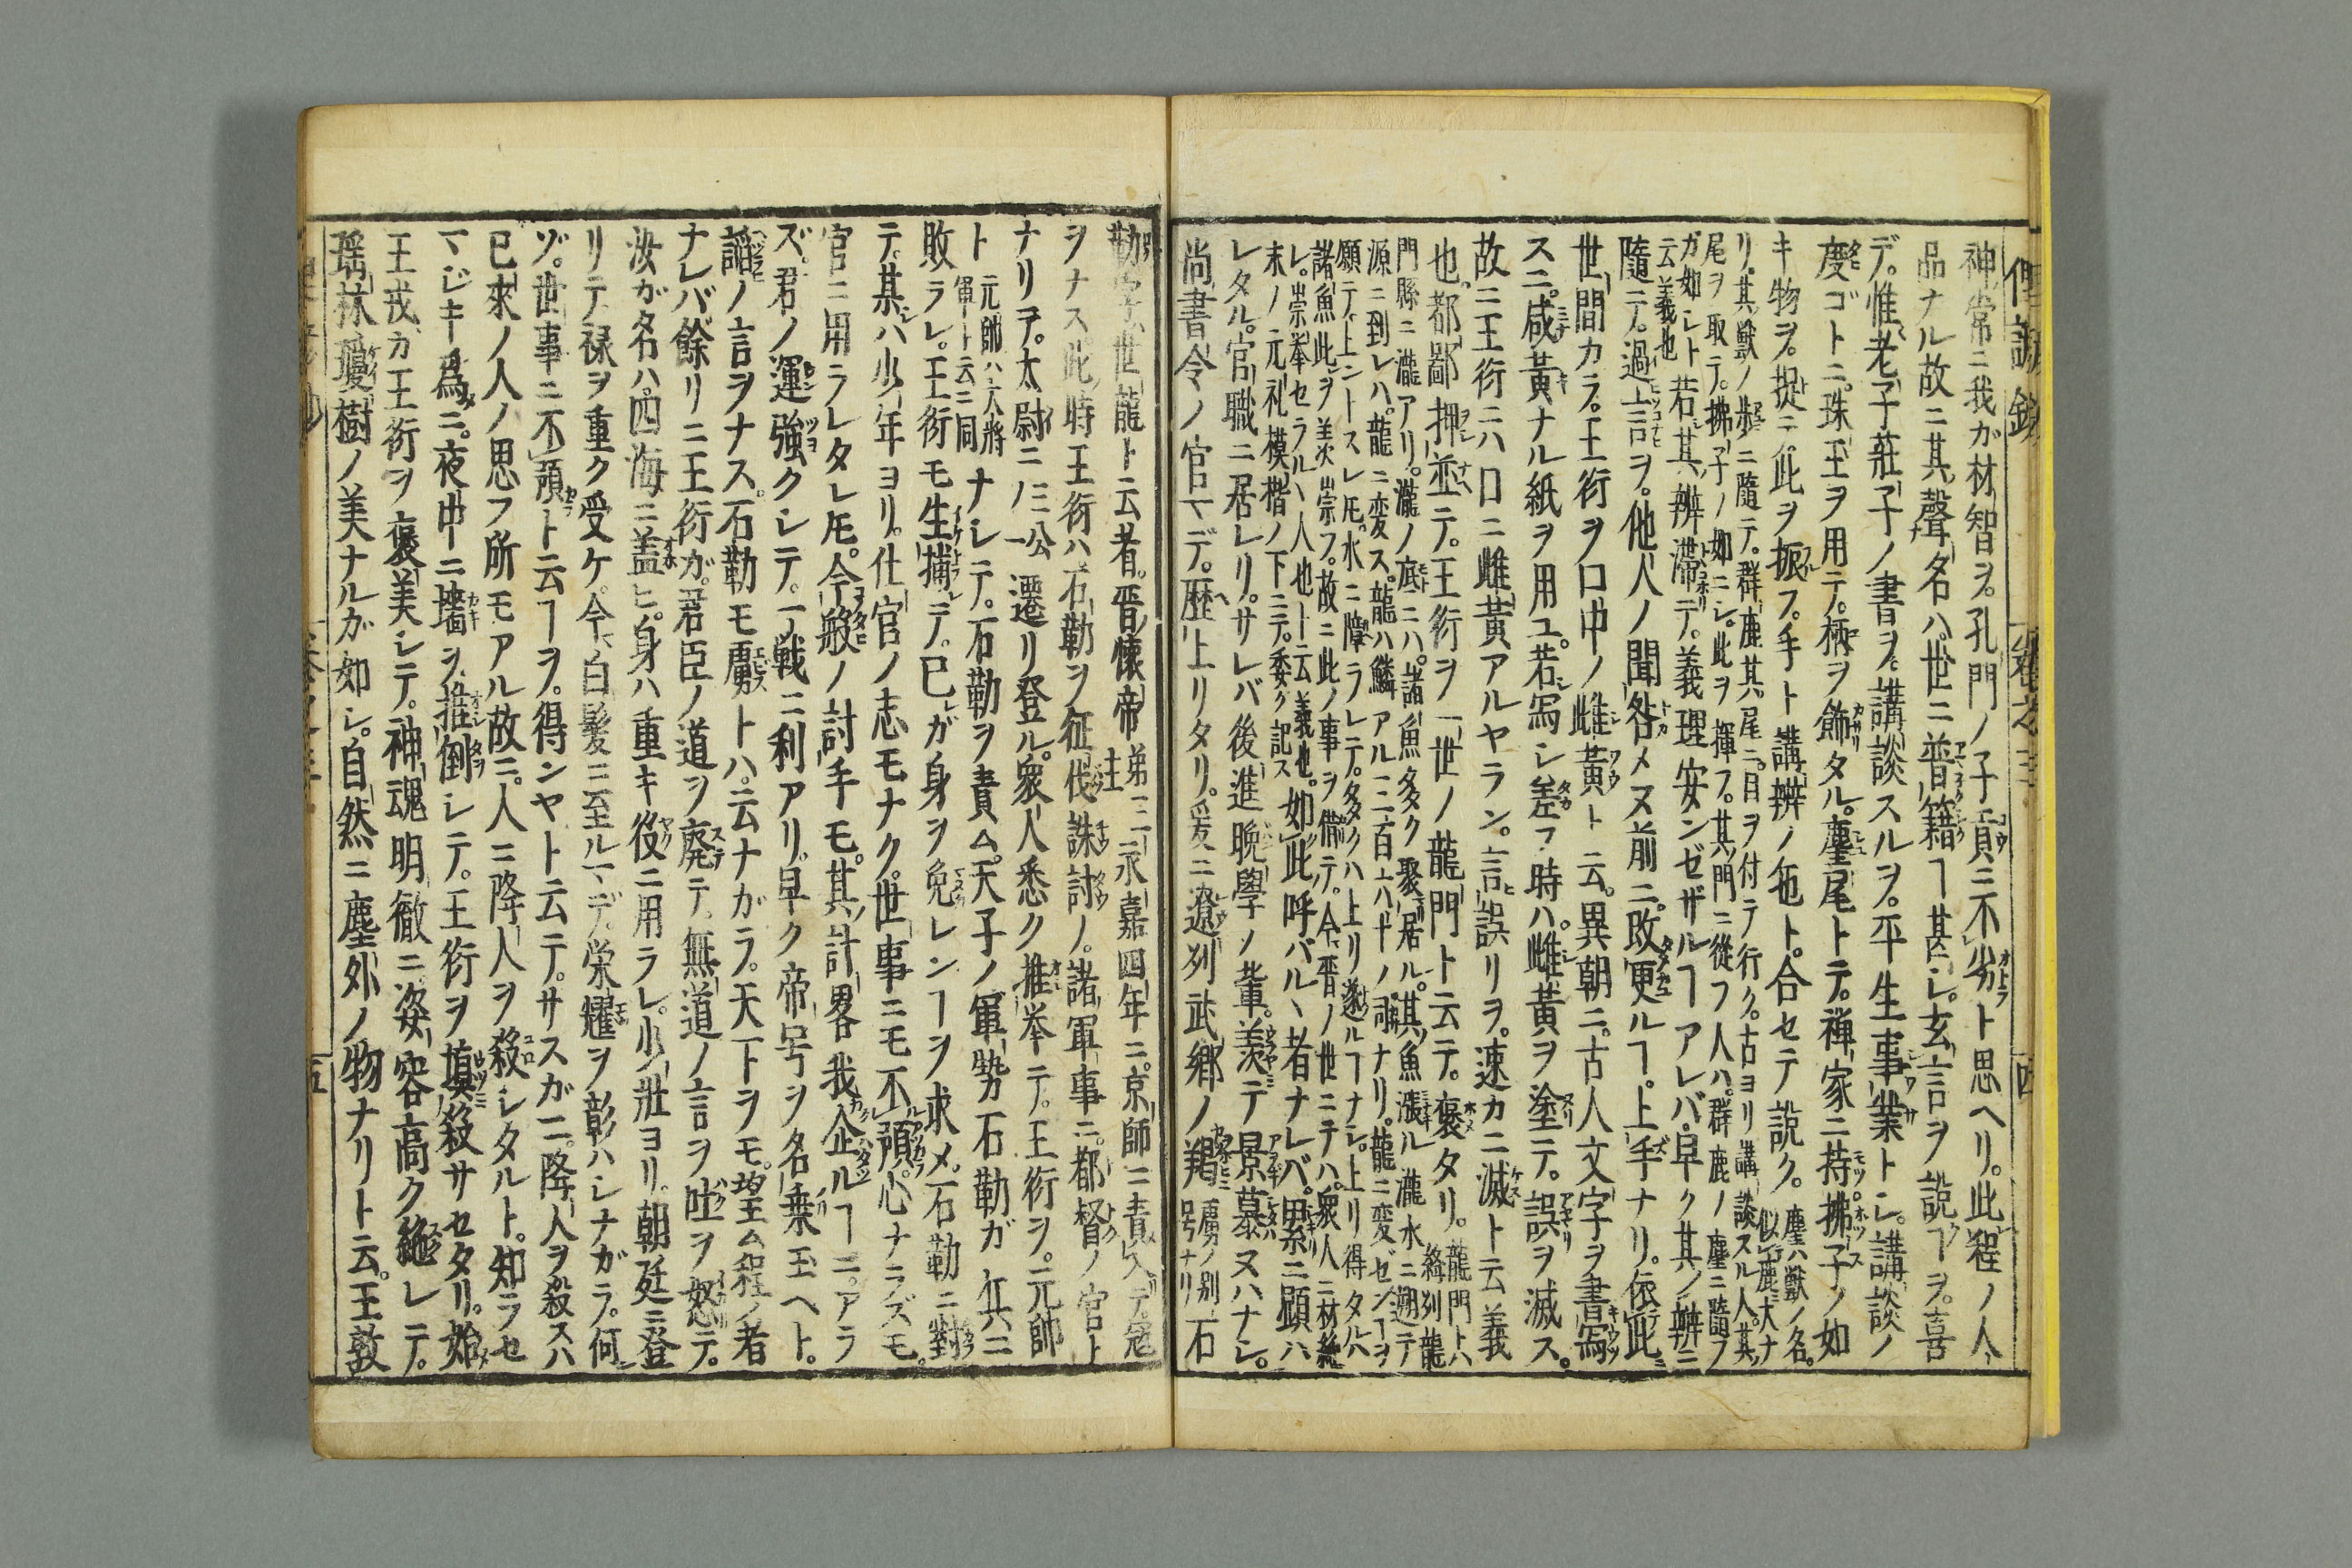 神常ニ我ガ材智ヲ。孔門ノ子貢ニ不劣ト思ヘリ。此程ノ人
品ナル故ニ其聲名ハ世ニ普籍ヿ甚シ。玄言ヲ説ヿヲ。喜
デ。惟老子莊子ノ書ヲ講談スルヲ。平生事業トシ。講談ノ
度ゴトニ。珠玉ヲ用テ。柄ヲ飾タル。麈尾トテ。禅家ニ持拂子ノ如
キ物ヲ。捉ニ此ヲ振フ。手ト講辨ノ砲ト。合セテ説ク。麈ハ獣ノ名。似鹿大ナ
リ。其獣ノ歩ニ隨テ。群鹿其尾ニ。目ヲ付テ行ク。古ヨリ講談スル人。其
尾ヲ取テ。拂子ノ如ニシ。此ヲ揮フ。其門ニ從フ人ハ。群鹿ノ麈ニ隨フ
ガ如シト云義也 若其辨滯テ。義理安ンゼザルヿアレバ。早ク其ノ辨ニ
隨テ。過言ヲ。他人ノ聞咎メヌ前ニ。改更ルヿ。上手ナリ。依此ニ
世間カラ。王衍ヲ口中ノ雌黄ト云。異朝ニ。古人文字ヲ書寫
スニ。咸黄ナル紙ヲ用ユ。若寫シ差フ時ハ。雌黄ヲ塗テ。誤ヲ滅ス。
故ニ王衍ニハ口ニ雌黄アルヤラン。言誤リヲ。速カニ滅ト云義
也。都鄙押並テ。王衍ヲ一世ノ龍門ト云テ。褒タリ。龍門トハ絳州龍
門縣ニ瀧アリ。瀧ノ底ニハ。諸魚多ク聚居ル。其魚漲ル瀧水ニ遡テ
源ニ到レハ。龍ニ変ス。龍ハ鱗アル三百六十ノ司ナリ。龍ニ変ゼンヿヲ
願テ。上ントスレ𪜈。水ニ障ラレテ。多クハ上リ遂ルヿナシ。上リ得タルハ
諸魚此ヲ羨崇フ。故ニ此ノ事ヲ備テ。今晋ノ世ニテハ。衆人ニ材絶
レ。崇挙セラルヽ人也ト云義也。
末ノ元礼模楷ノ下ニテ。委ク記ス 如此呼バルヽ者ナレバ。累ニ顕ハ
レタル。官職ニ居レリ。サレバ後進晩學ノ輩。羨テ景慕ヌハナシ。
尚書令ノ官マデ。歴上リタリ。爰ニ遼列武郷ノ羯虜ノ別号ナリ石
勒字世龍ト云者。晋懷帝第三主永嘉四年ニ。京師ニ責入テ。冦
ヲナス此時王衍ハ石勒ヲ征伐誅討ノ。諸軍事ニ。都督ノ官ト
ナリヲ。太尉ニ三公ノ一遷リ登ル。衆人悉ク推挙テ。王衍ヲ。元帥
ト元帥ハ大將軍ト云ニ同ナシテ。石勒ヲ責ム。天子ノ軍勢石勒ガ兵ニ
敗ラレ。王衍モ生捕レテ。已ガ身ヲ免レンヿヲ求メ。石勒ニ對
テ。某ハ少年ヨリ。仕官ノ志モナク。世事ニモ不預心ナラズモ。
官ニ用ラレタレ𪜈。今般ノ討手モ。其計畧我企ルヿニアラ
ズ。君ノ運強クシテ。一戦ニ利アリ。早ク帝号ヲ名乗玉ヘト。
謟ノ言ヲナス。石勒モ虜トハ。云ナガラ。天下ヲモ。望ム程ノ者
ナレバ餘リニ王衍ガ。君臣ノ道ヲ廃テ。無道ノ言ヲ吐ヲ怒テ。
汝ガ名ハ。四海ニ蓋ヒ。身ハ重キ役ニ用ラレ。少壯ヨリ。朝廷ニ登
リテ禄ヲ重ク受ケ。今白髪ニ至ルマデ。栄耀ヲ彰ハシナガラ。何
ゾ。世事ニ不預ト云ヿヲ。得ンヤト云テ。サスガニ。降人ヲ殺スハ
已來ノ人ノ思フ所モアル故ニ。人ニ降人ヲ殺シタルト。知ラセ
マジキ爲ニ。夜中ニ墻ヲ。推倒シテ。王衍ヲ填殺サセタリ。始
王戎ガ王衍ヲ褒美シテ。神魂明徹ニ。姿容高ク絶レテ。
瑶林瓊樹ノ美ナルガ如シ。自然ニ塵外ノ物ナリト云。王敦